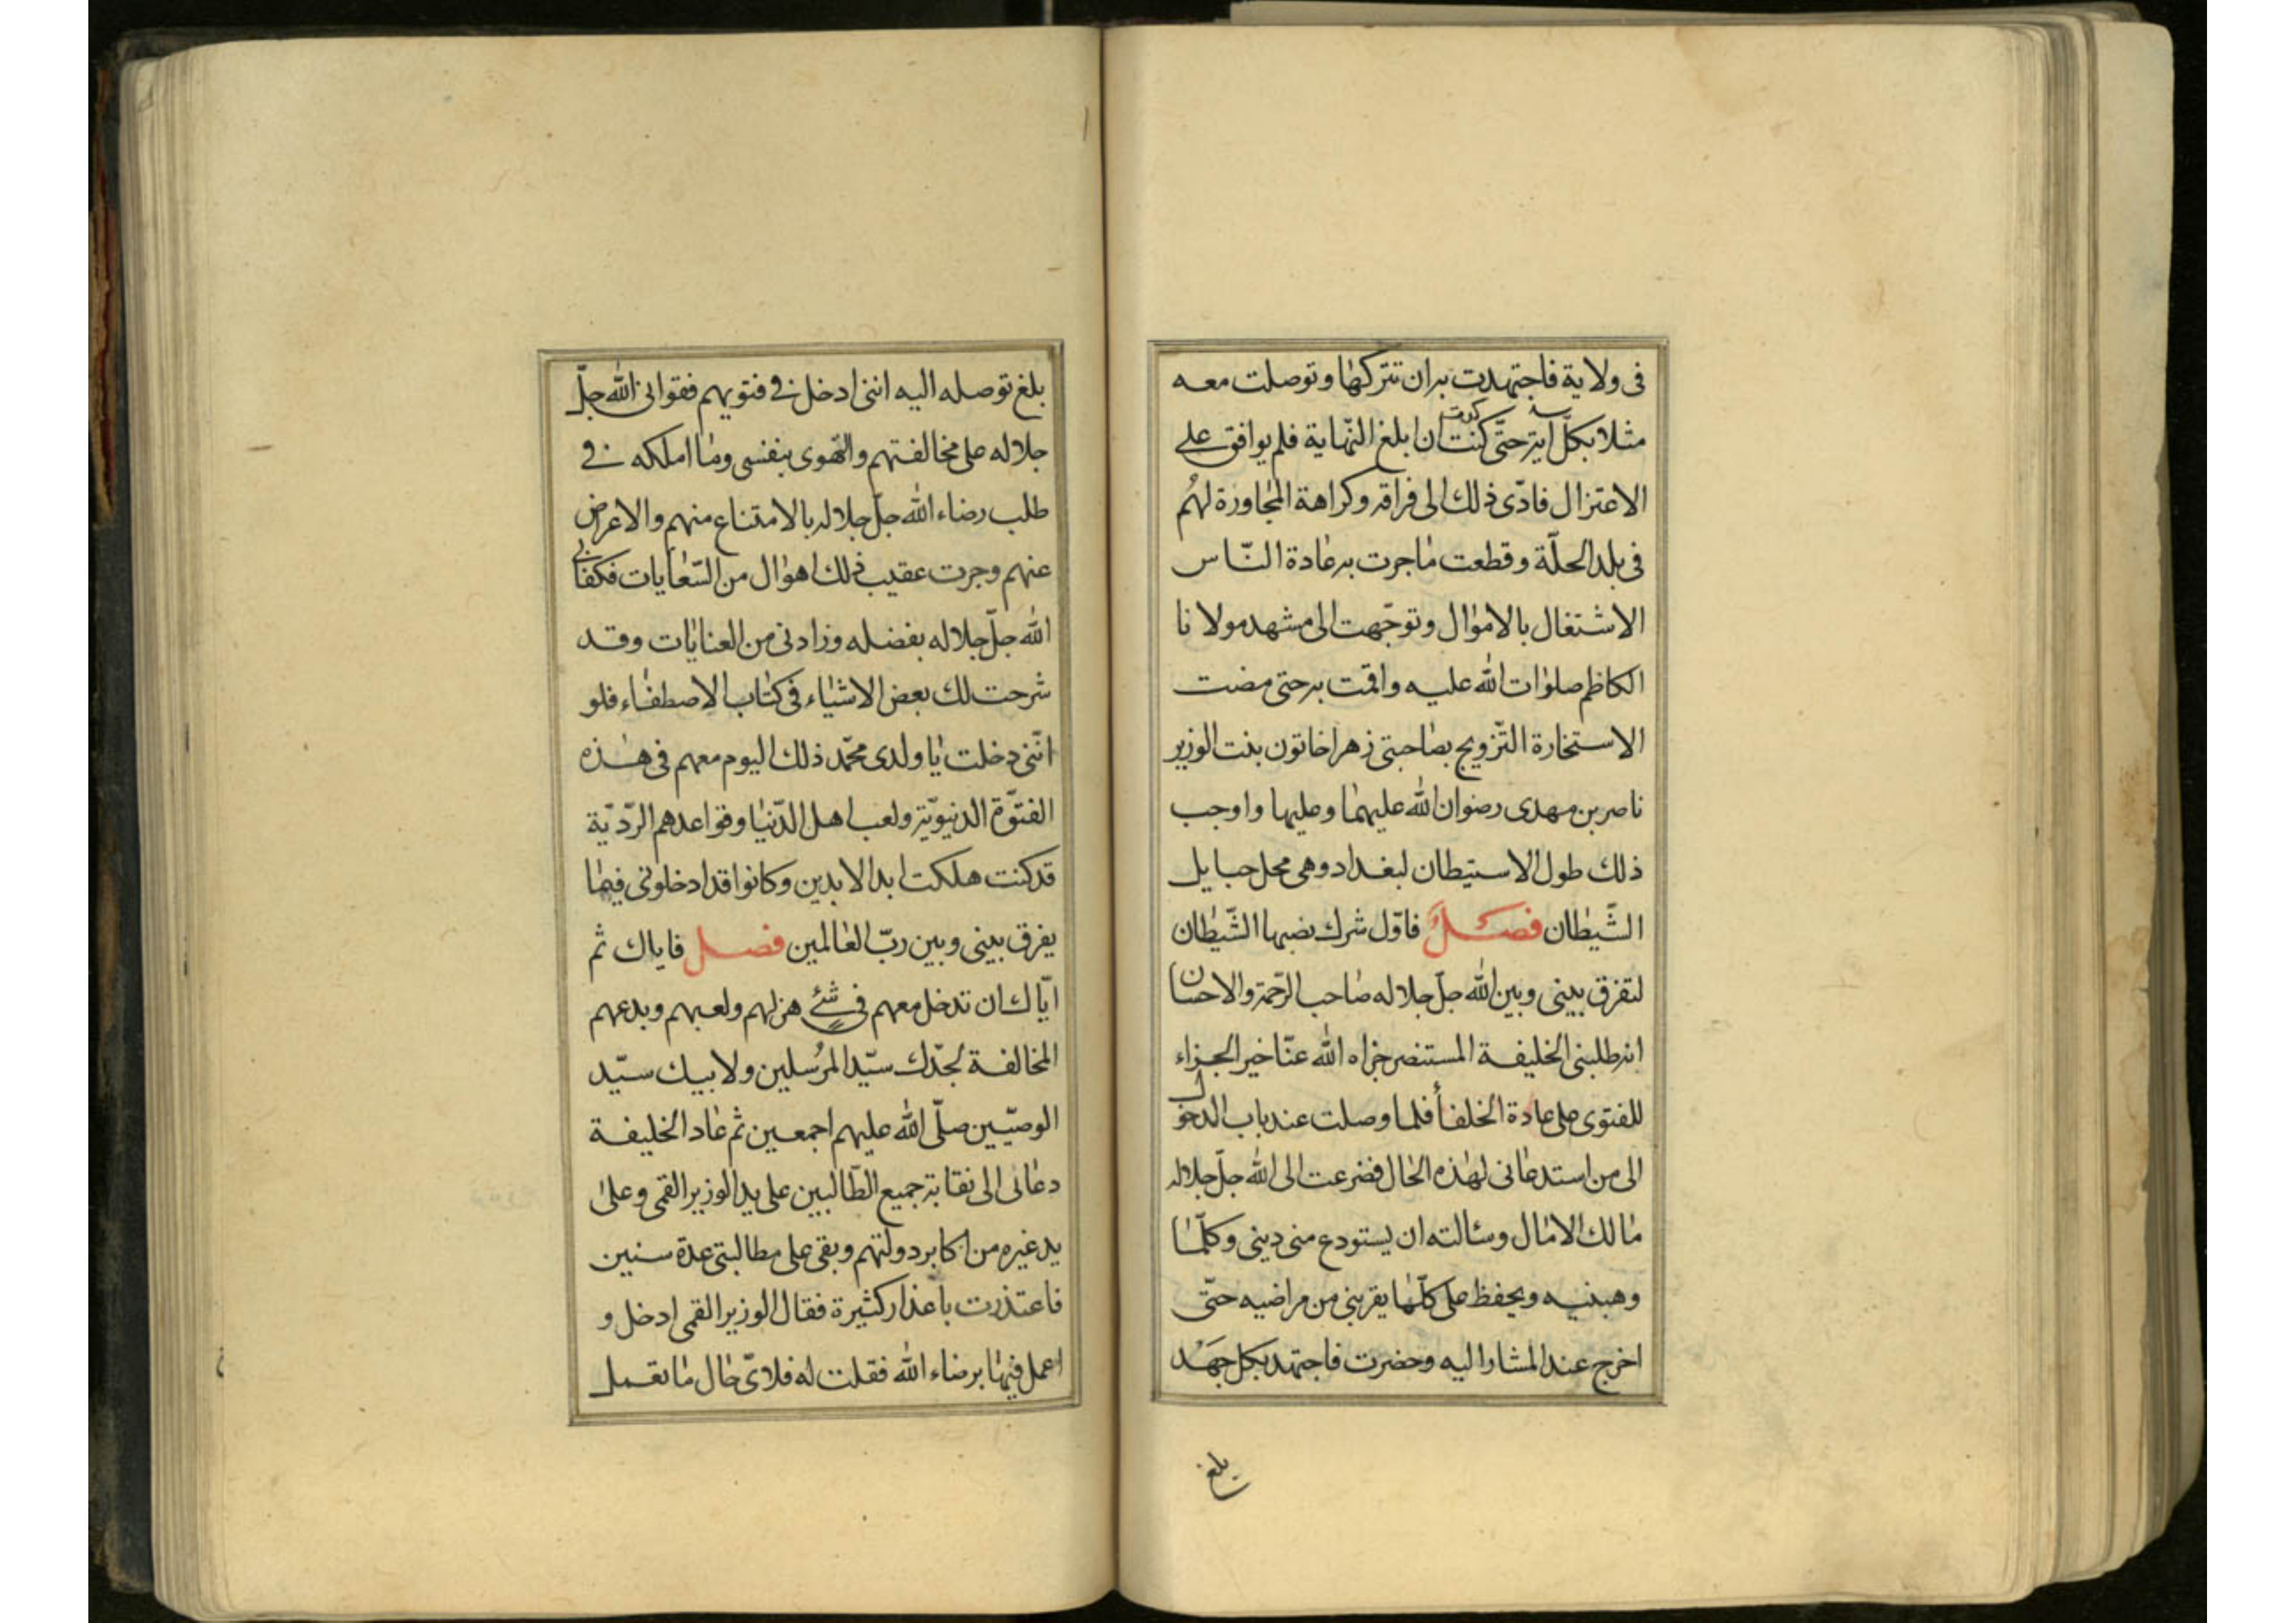 فى ولاية فاجتهدت به ان تتركها وتوصلت معه
مثلا بكلّ آية حتّى كنت كدت ان ابلغ النّهاية فلم يوافق على
الاعتزال فادّى ذلك الى فراقه وكراهة المجاورة لهُم
فى بلد الحلّة وقطعت ما جرت به عادة النّاس
الاشتغال بالاموال وتوجّهت الى مشهد مولانا
الكاظم صلوات الله عليه واقمت به حتى مضت
الاستخارة التّزويج بصاحبتى زهرا خاتون بنت الوزير
ناصر بن مهدى رضوان الله عليهما وعليها واوجب
ذلك طول الاستيطان لبغداد وهى محل حبايل
الشّيطان فصلٌ فاوّل شرك نصبها الشّيطان
لتفرق بينى وبين الله جلّ جلاله صاحب الرّحمة والاحسان
انه طلبنى الخليفة المستنصر جزاه الله عنّا خير الجزاء
للفتوى على عادة الخلفأ فلما وصلت عند باب الدخول
الى من استدعانى لهذه الحال فضرعت الى الله جلّ جلاله
مالك الامال وسالته ان يستودع منى دينى وكلّما
وهبنيه ويحفظ على كلّها يقربنى من مراضيه حتّى
اخرج عند المشار اليه وحضرت فاجتهد بكل جَهْد
بلغ
بلغ توصله اليه اننى ادخل فى فتويهم فقوانى الله جلّ
جلاله على مخالفتهم والتهوى بنفسى وما املكه فى
طلب رضاء الله جلّ جلاله بالامتناع منهم والاعراض
عنهم وجرت عقيب ذلك اهوال من السّعايات فكفانى
الله جلّ جلاله بفضله وزادنى من العنايات وقد
شرحت لك بعض الاشياء فى كتاب الاصطفاء فلو
انّنى دخلت يا ولدى محمّد ذلك اليوم معهم فى هذه
الفتوّة الدنيويّة ولعب اهل الدّنيا وقواعدهم الرّديّة
قد كنت هلكت ابد الابدين وكانوا قد ادخلونى فيما
يفرق بينى وبين ربّ العالمين فصل فاياك ثم
ايّاك ان تدخل معهم فى شئ هزلهم ولعبهم وبدعهم
المخالفة لجدّك سيّد المرُسلين ولابيك سيّد
الوصيّين صلّى الله عليهم اجمعين ثم عاد الخليفة
دعانى الى نقابة جميع الطّالبين على يد الوزير القمى وعلى
يد غيره من اكابر دولتهم وبقى على مطالبتى عدة سنين
فاعتذرت باعذار كثيرة فقال الوزير القمى ادخل و
اعمل فيها برضاء الله فقلت له فلاىّ حال ما تعمل